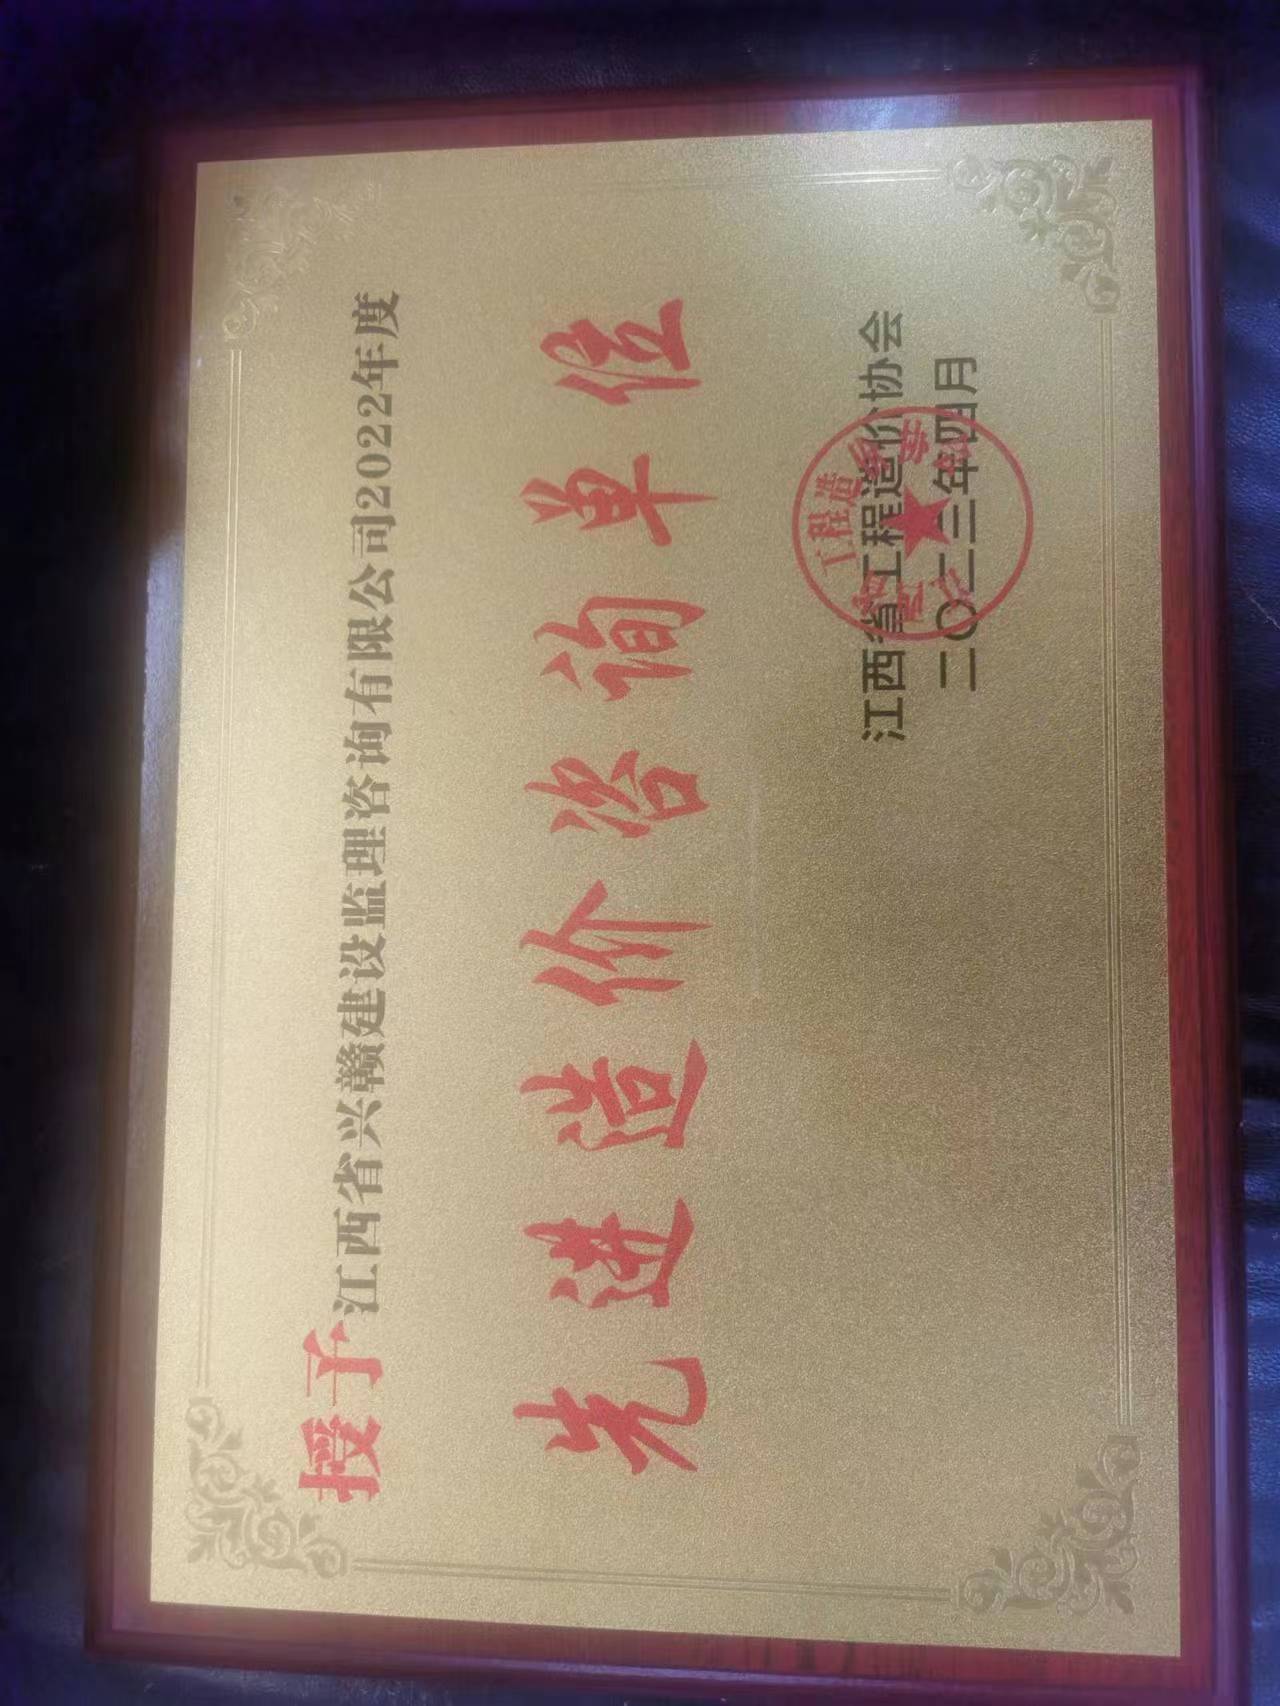 授予江西省兴赣建设监理咨询有限公司2022年度
先进造价咨询单位
江西省工程造价协会
二〇二三年四月